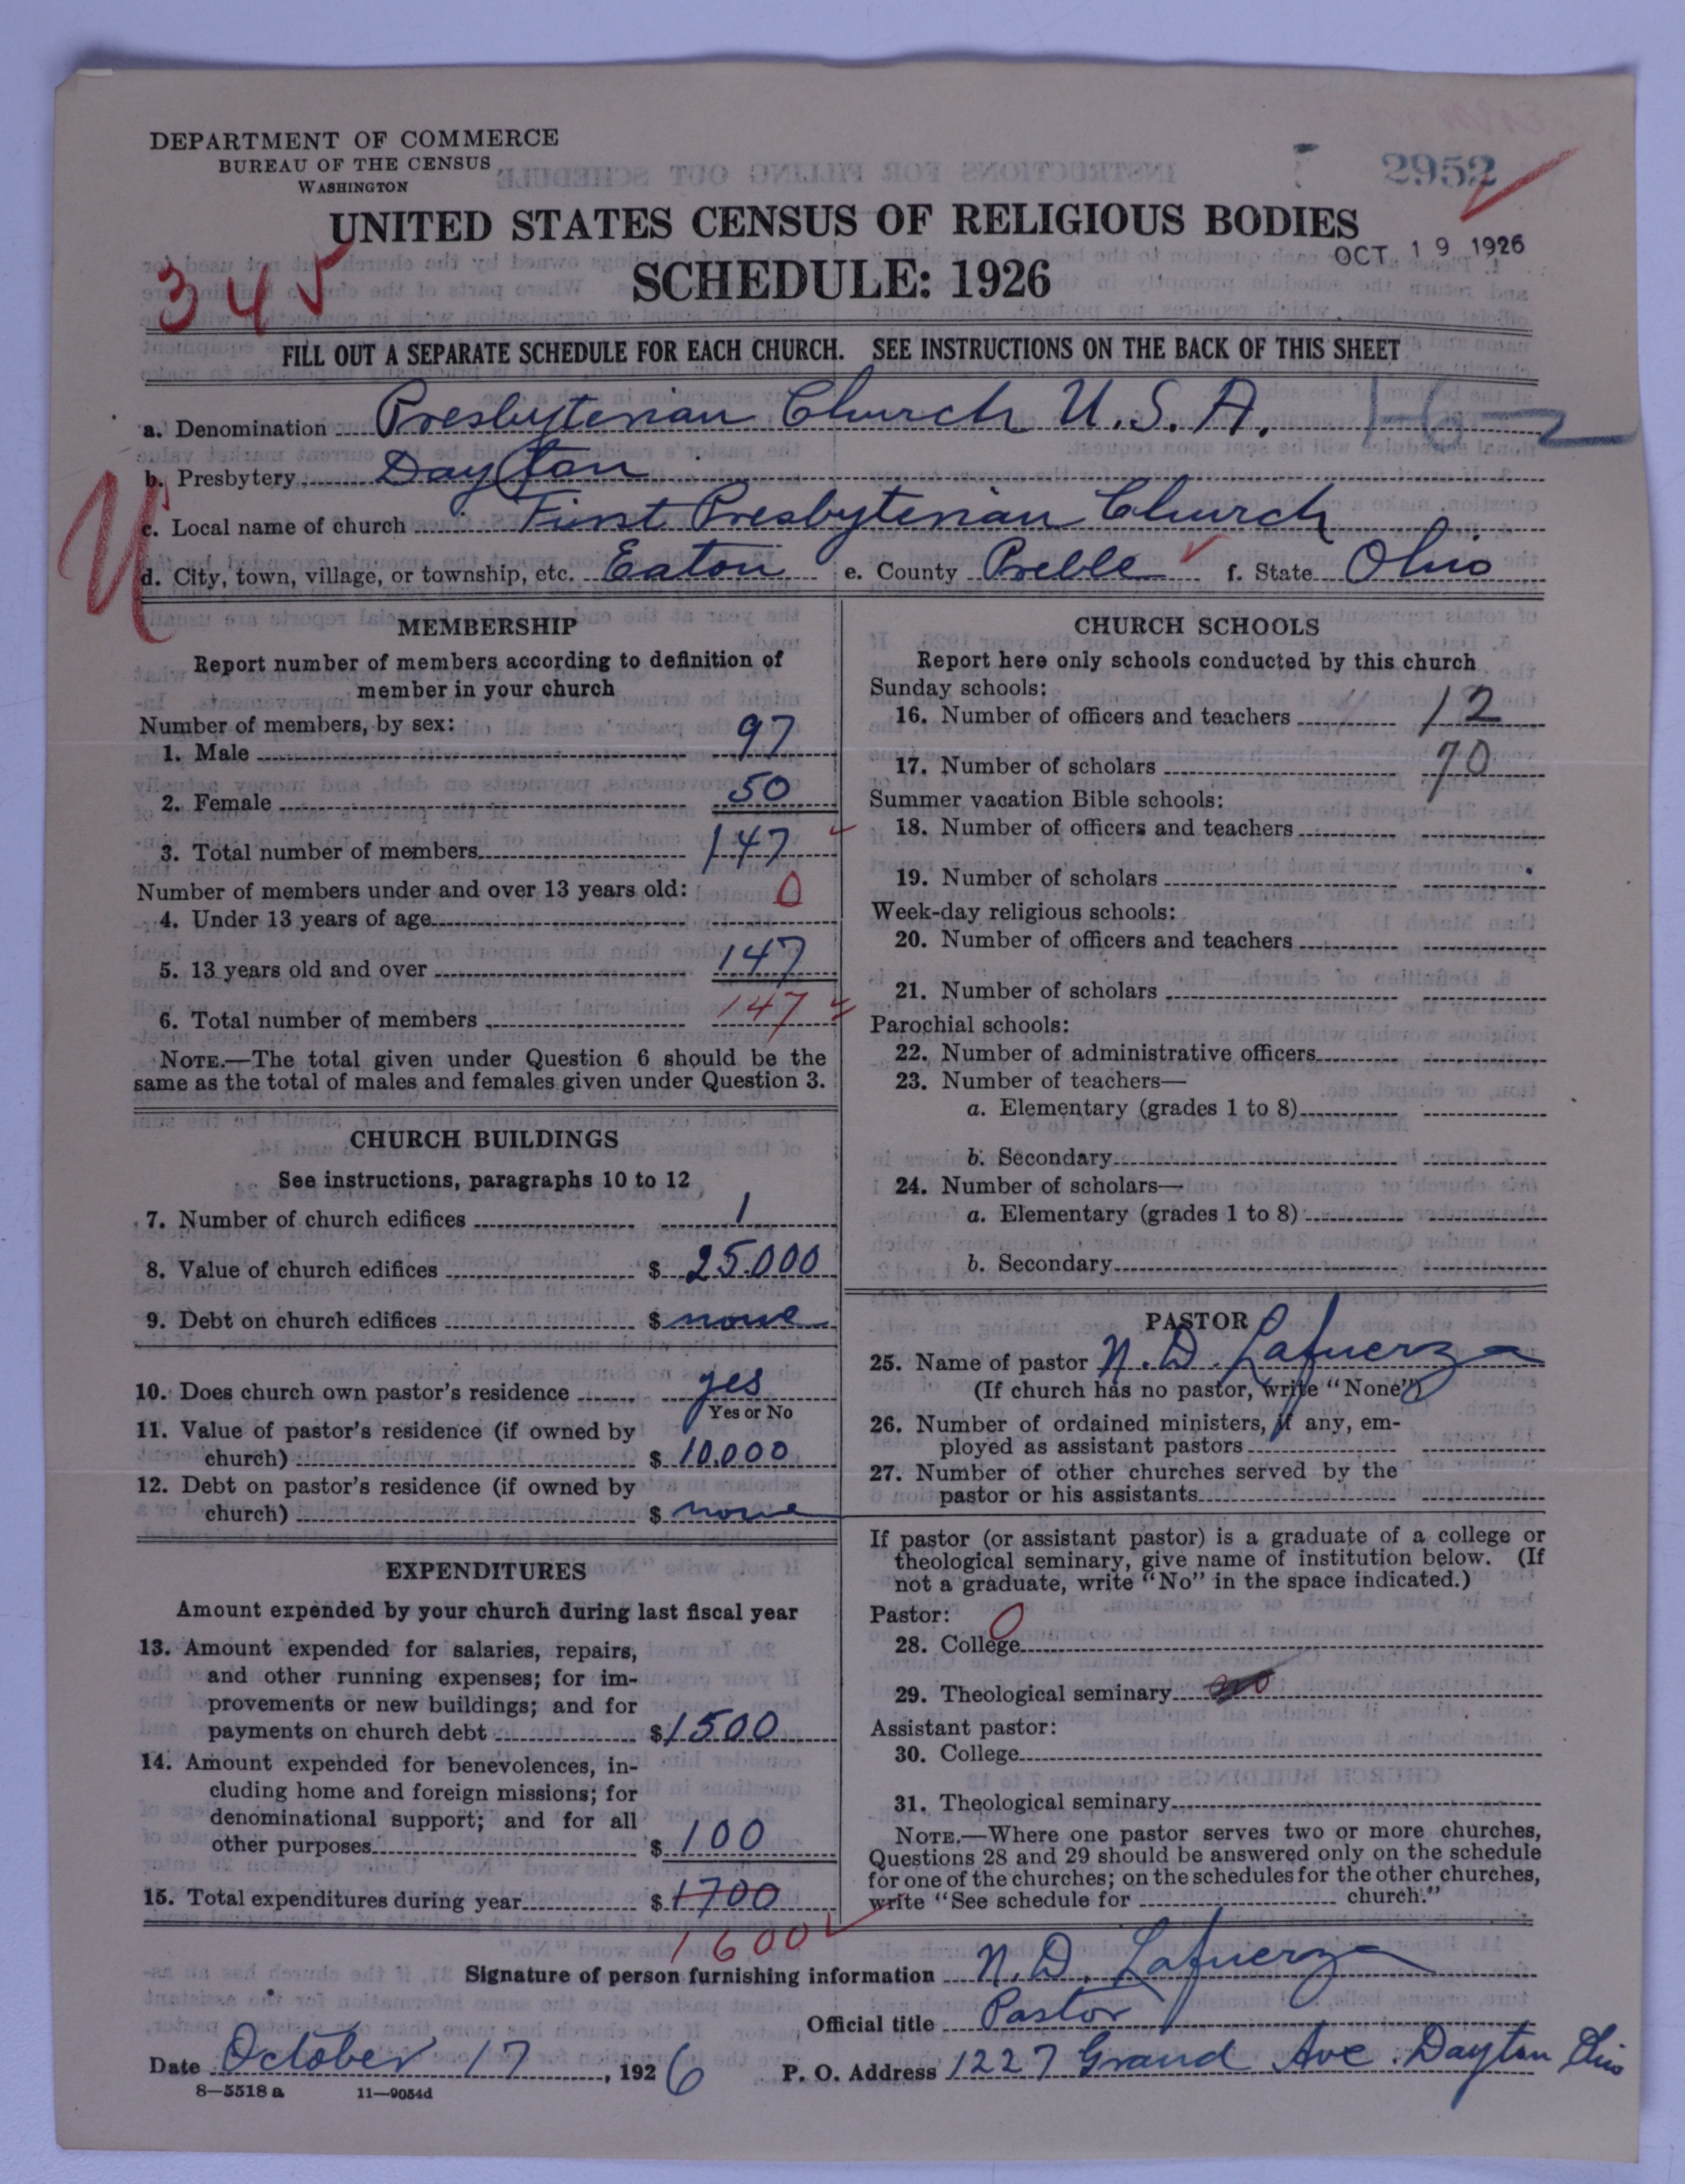 DEPARTMENT OF COMMERCE
BUREAU OF THE CENSUS
WASHINGTON
2952
UNITED STATES CENSUS OF RELIGIOUS BODIES
OCT 19 1926
345
SCHEDULE: 1926
FILL OUT A SEPARATE SCHEDULE FOR EACH CHURCH. SEE INSTRUCTIONS ON THE BACK OF THIS SHEET
a. Denomination Presbyterian Church U.S.A.
b. Presbytery Dayton
c. Local name of church First Presbyterian Church
d. City, town, village, or township, etc. Eaton e. County Preble f. State Ohio
MEMBERSHIP
Report number of members according to definition of
member in your church
Number of members, by sex:
1. Male 97
2. Female 50
3. Total number of members 147
Number of members under and over 13 years old:
4. Under 13 years of age 0
5. 13 years old and over 147
6. Total number of members 147
NOTE.—The total given under Question 6 should be the
same as the total of males and females given under Question 3.
CHURCH BUILDINGS
See instructions, paragraphs 10 to 12
7. Number of church edifices 1
8. Value of church edifices $ 25.000
9. Debt on church edifices $ none
10. Does church own pastor's residence yes
Yes or No
11. Value of pastor's residence (if owned by
church) $ 10.000
12. Debt on pastor's residence (if owned by
church) $ none
EXPENDITURES
Amount expended by your church during last fiscal year
13. Amount expended for salaries, repairs,
and other running expenses; for im-
provements or new buildings; and for
payments on church debt $ 1500
14. Amount expended for benevolences, in-
cluding home and foreign missions; for
denominational support; and for all
other purposes $ 100
15. Total expenditures during year $ 1700
1600
CHURCH SCHOOLS
Report here only schools conducted by this church
Sunday schools:
16. Number of officers and teachers 12
17. Number of scholars 70
Summer vacation Bible schools:
18. Number of officers and teachers
19. Number of scholars
Week-day religious schools:
20. Number of officers and teachers
21. Number of scholars
Parochial schools:
22. Number of administrative officers
23. Number of teachers—
a. Elementary (grades 1 to 8)
b. Secondary
24. Number of scholars—
a. Elementary (grades 1 to 8)
b. Secondary
PASTOR
25. Name of pastor N. D. Lafuerza
(If church has no pastor, write "None")
26. Number of ordained ministers, if any, em-
ployed as assistant pastors
27. Number of other churches served by the
pastor or his assistants
If pastor (or assistant pastor) is a graduate of a college or
theological seminary, give name of institution below. (If
not a graduate, write "No" in the space indicated.)
Pastor:
28. College 0
29. Theological seminary
Assistant pastor:
30. College
31. Theological seminary
NOTE.—Where one pastor serves two or more churches,
Questions 28 and 29 should be answered only on the schedule
for one of the churches; on the schedules for the other churches,
write "See schedule for church."
Signature of person furnishing information N. D. Lafuerza
Official title Pastor
Date October 17, 1926 P. O. Address 1227 Grand Ave. Dayton Ohio
8—5518 a 11—9054d